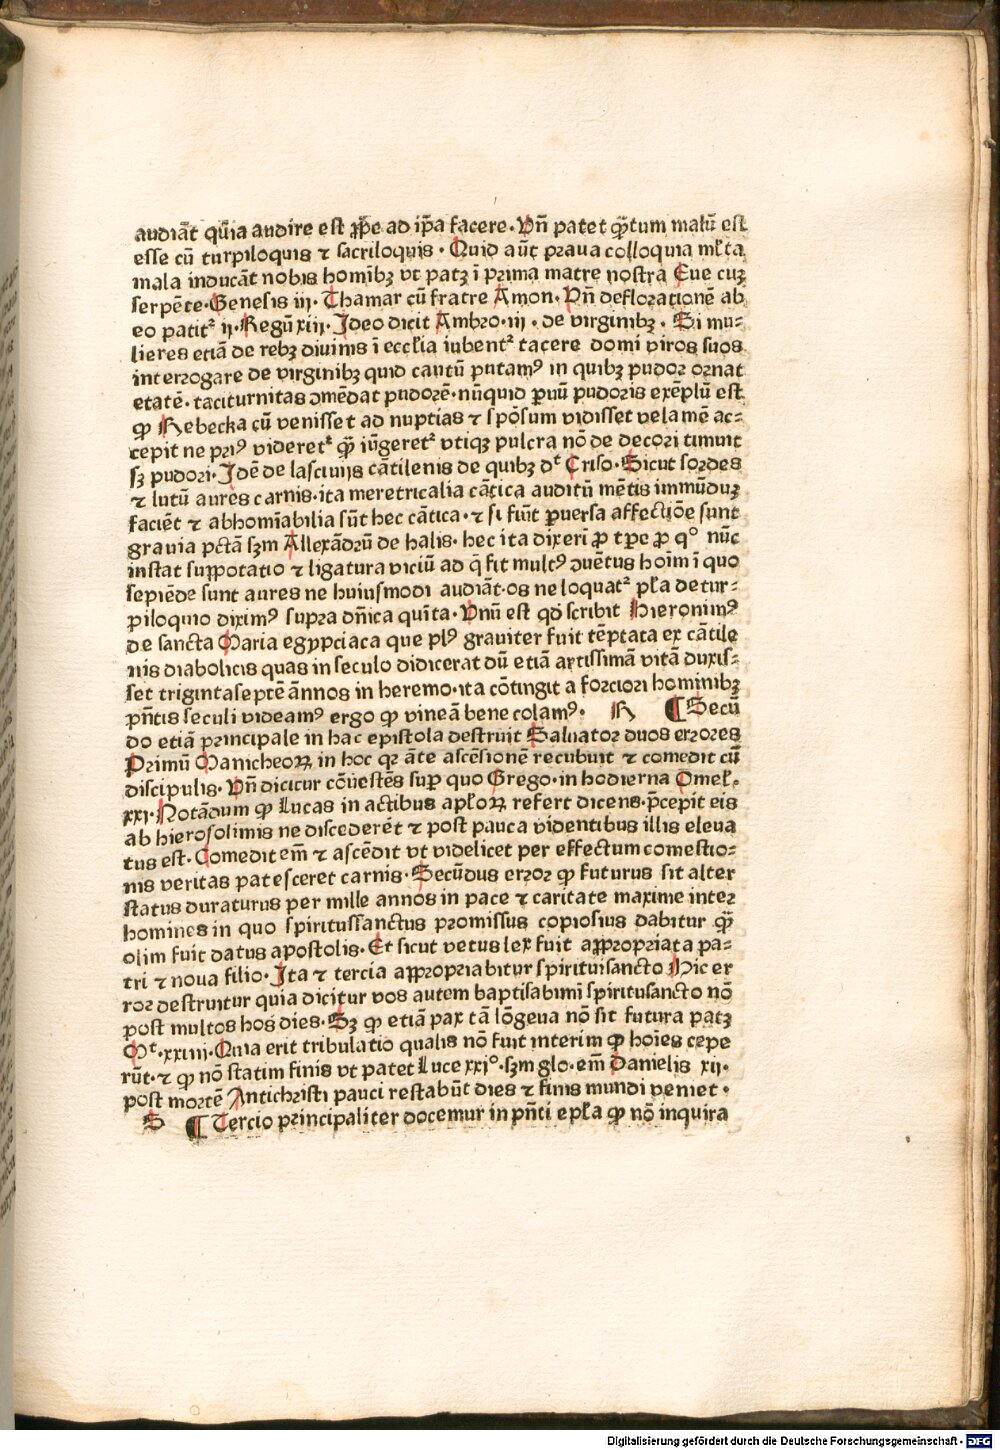 audiāt qm̄ia audire est ꝓpe ad ip̄a facere. Vn̄ patet qȝtum malū est
esse cū turpiloquis ⁊ sacriloquis. Quid aūt praua colloquia ml̄ta
mala inducāt nobis homībꝫ vt patꝫ ī prima matre nostra Eue cuꝫ
serpēte. Genesis iij. Thamar cū fratre Amon. Vn̄ deflorationē ab
eo patit᷑ ij. Regū xiij. Ideo dicit Ambro. iij. de virginibꝫ. Si mu⸗
lieres etiā de rebꝫ diuinis ī eccl̄ia iubent᷑ tacere domi viros suos
interrogare de virginibꝫ quid cautū putamꝰ in quibꝫ pudor ornat
etatē. taciturnitas ↄmēdat pudorē. nūquid ꝑuū pudoris exēplū est
ꝙ Rebecka cū venisset ad nuptias ⁊ spōsum vidisset velamē ac⸗
cepit ne priꝰ videret᷑ qȝ iūgeret᷑ vtiqꝫ pulcra nō de decori timuit
sꝫ pudori. Idē de lasciuijs cātilenis de quibꝫ dt̄ Criso. Sicut sordes
⁊ lutū aures carnis. ita meretricalia cātica auditū mētis immūduꝫ
faciēt ⁊ abhomīabilia sūt hec cātica. ⁊ si fiūt ꝑuersa affectiōe sunt
grauia pctā sꝫm Allexādrū de halis. hec ita dixeri ꝓ tꝑe ꝓ qͦ nūc
instat suꝑpotatio ⁊ ligatura viciū ad q̄ fit multꝰ ↄuētus hoīm ī quo
sepiēde sunt aures ne huiusmodi audiāt. os ne loquat᷑ pl̄a de tur⸗
piloquio diximꝰ supra dn̄ica quīta. Vnū est qd̄ scribit Hieronimꝰ
de sancta Maria egypciaca que plꝰ grauiter fuit tēptata ex cātile
nis diabolicis quas in seculo didicerat dū etiā artissimā vitā duxis⸗
set trigintaseptē annos in heremo. ita cōtingit a forciori hominibꝫ
pn̄tis seculi videamꝰ ergo ꝙ vineā bene colamꝰ. R ¶ Secū
do etiā principale in hac epistola destruit Saluator duos errores
Primū Manicheoꝝ in hoc qꝛ āte ascēsionē recubuit ⁊ comedit cū
discipulis. Vn̄ dicitur cōuestēs suꝑ quo Grego. in hodierna Omel̄.
xxi. Notādum ꝙ Lucas in actibus apl̄oꝝ refert dicens. p̄cepit eis
ab hierosolimis ne discederēt ⁊ post pauca videntibus illis eleua
tus est. Comedit em̄ ⁊ ascēdit vt videlicet per effectum comestio⸗
nis veritas patesceret carnis. Secūdus error ꝙ futurus sit alter
status duraturus per mille annos in pace ⁊ caritate maxime inter
homines in quo spiritussanctus promissus copiosius dabitur qȝ
olim fuit datus apostolis. Et sicut vetus lex fuit aꝓpropriata pa⸗
tri ⁊ noua filio. Ita ⁊ tercia appropriabitur spirituisancto Hic er
ror destruitur quia dicitur vos autem baptisabimī spiritusancto nō
post multos hos dies. Sꝫ ꝙ etiā pax tā lōgeua nō sit futura patꝫ
Mt̄. xxiiij. Quia erit tribulatio qualis nō fuit interim ꝙ hoīes cepe
rūt. ⁊ ꝙ nō statim finis vt patet Luce xxiͦ. sꝫm glo. em̄ Danielis xij.
post mortē Antichristi pauci restabūt dies ⁊ finis mundi veniet.
S ¶ Tercio principaliter docemur in pn̄ti epl̄a ꝙ nō inquira
Digitalisierung gefördert durch die Deutsche Forschungsgemeinschaft - DFG